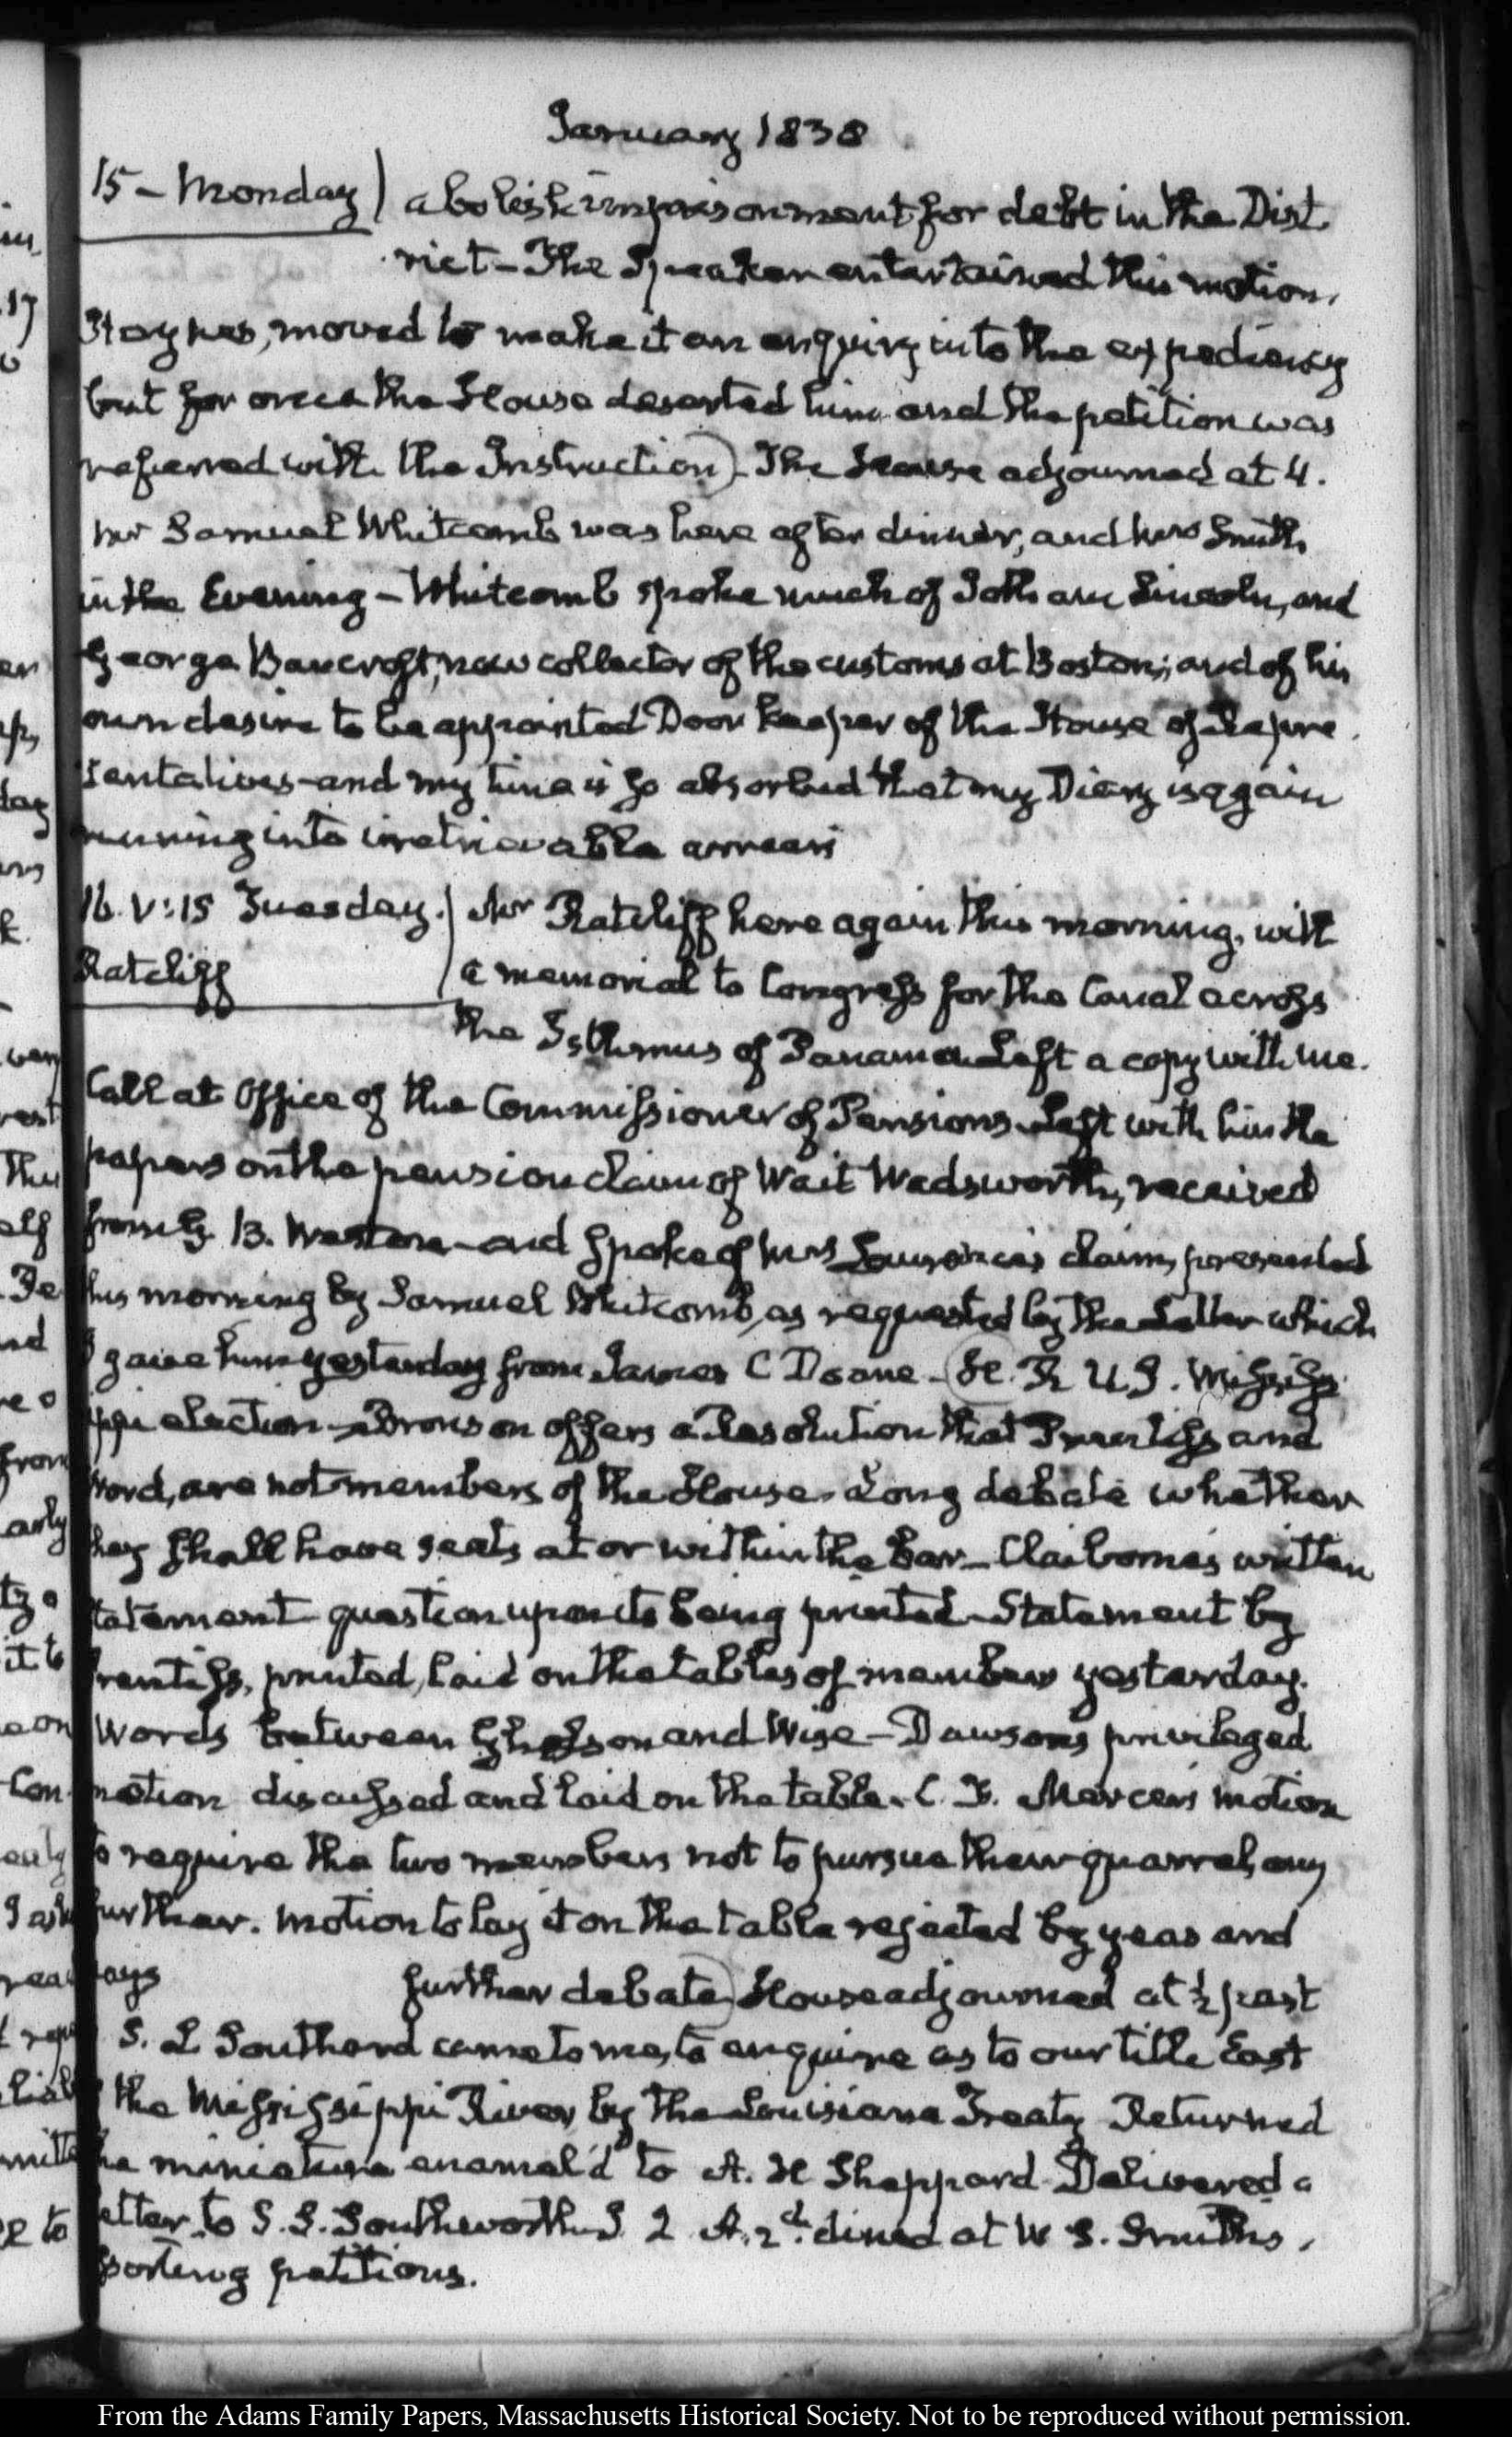 January 1838
15 - Monday) abolish imprisonment for debt in the Dist
rict - The Speaker entertained this motion.
Haynes, moved to make it an enquiry into the expediency
but for once the House deserted him and the petition was
referred with the Instruction) - The House adjourned at 4.
Mr Samuel Whitcomb was here after dinner, and Mrs Smith
in the Evening - Whitcomb spoke much of Jotham Lincoln, and
George Bancroft, new collector of the customs at Boston; and of his
own desire to be appointed Door keeper of the House of Repre
sentatives - and my time is so absorbed that my Diary is again
running into irretrievable arrears
16. V:15 Tuesday.) Mr Ratcliff here again this morning, with
Ratcliff
a memorial to Congress for the Canal across
the Isthmus of Panama. Left a copy with me.
Call at Office of the Commissioner of Pensions. Left with him the
papers on the pension claim of Wait Wadsworth, received
from G. B. Weston - and spoke of Mrs claim, presented
this morning by Samuel Whitcomb, as requested by the Letter which
I gave him yesterday from James C Doane - (H. R U.S. Missisi
ppi election - Bronson offers a Resolution that Prentiss and
Word, are not members of the House. Long debate whether
they shall have seats at or within the bar - Claiborne's written
statement question upon its being printed - Statement by
Prentiss, printed, laid on the tables of members yesterday.
Words between Gholson and Wise - Dawson's privileged
motion discussed and laid on the table. C. F. Mercer's motion
to require the two members not to pursue their quarrel any
further. Motion to lay it on the table rejected by yeas and
nays further debate) House adjourned at ½ past
S. L Southard came to me, to enquire as to our title East
of the Mississippi River by the Louisiana Treaty Returned
the miniature enamel'd to A. H Sheppard - Delivered a
letter to S. S. Southworth J. Q A. 2d. dined at W S. Smith's.
Sorting petitions.